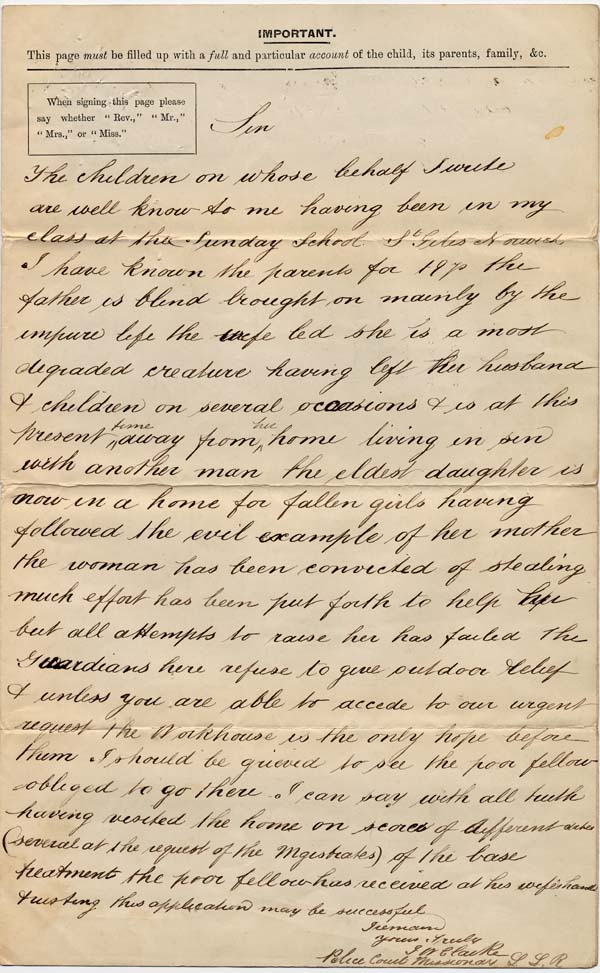 IMPORTANT.
This page must be filled up with a full and particular account of the child, its parents, family, &c.
When signing this page please
say whether "Rev.," "Mr.,"
"Mrs.," or "Miss."
Sir
The children on whose behalf I write
are well know to me having been in my
class at the Sunday School St Giles Norwich
I have known the parents for the
father is blind brought on mainly by the
impure life the wife led she is a most
degraded creature having left her husband
& children on several occasions & is at this
present time away from her home living in sin
with another man the eldest daughter is
now in a home for fallen girls having
followed the evil example of her mother
the woman has been convicted of stealing
much effort has been put forth to help her
but all attempts to raise her has failed the
Guardians here refuse to give outdoor relief
& unless you are able to accede to our urgent
request the Workhouse is the only hope before
them I should be grieved to see the poor fellow
obliged to go there. I can say with all truth
having visited the home on scores of different
(several at the request of the Magistrates) of the base
treatment the poor fellow has received at his wife's hand
trusting this application may be successful
I remain
Yours Truly
J W Clarke
Police Court Missionary